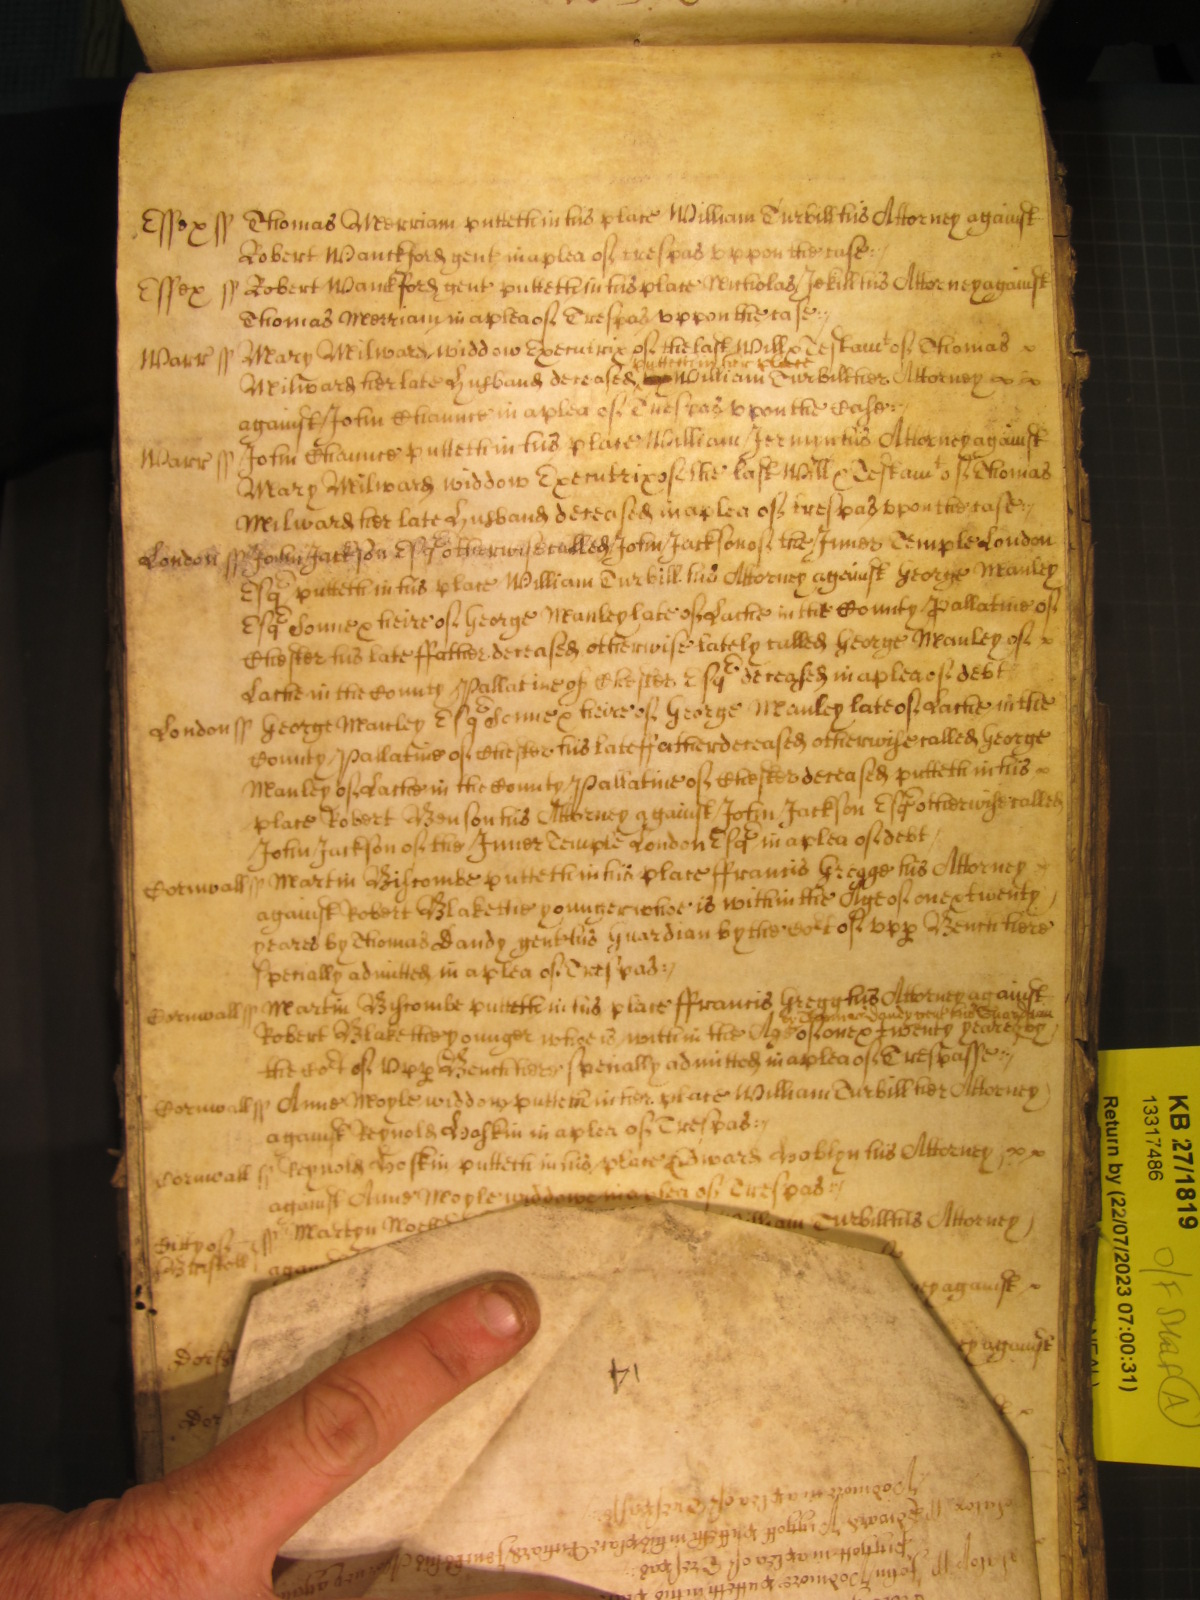 Essex ss Thomas Merriam putteth in his place William Turbill his Attorney against
Robert Wanckford gent in a plea of trespas vppon the case
Essex ss Robert Wanckford gent putteth in his place Nicholas Jekill his Attorney against
Thomas Merriam in a plea of Trespas vppon the case
Warr ss Mary Milward widdow Executrix of the last Will & Testamt of Thomas
putteth in her place
Milward her late Husband deceased William Turbill her Attorney
against John Chaunce in a plea of Trespas vpon the Case
Warr ss John Chaunce putteth in his place William Jermyn his Attorney against
Mary Milward widdow Executrix of the last Will & Testamt of Thomas
Milward her late Husband deceased in a plea of trespas vpon the case
London ss John Jackson Esqr otherwise called John Jackson of the Inner Temple London
Esqr putteth in his place William Turbill his Attorney against George Manley
Esqr Sonne & heire of George Manley late of Lache in the County Pallatine of
Chester his late ffather deceased otherwise lately called George Manley of
Lache in the County Pallatine of Chester Esqr deceased in a plea of debt
London ss George Manley Esqr Sonne & heire of George Manley late of Lache in the
County Pallatine of Chester his late ffather deceased otherwise called George
Manley of Lache in the County Pallatine of Chester deceased putteth in his
place Robert Benson his Attorney against John Jackson Esqr otherwise called
John Jackson of the Inner Temple London Esqr in a plea of debt
Cornwall ss Martin Biscombe putteth in his place ffrancis Gregge his Attorney
against Robert Blake the younger whoe is within the Age of one & twenty
yeares by Thomas Dandy gent his Guardian by the Cort of vpp Bench here
specially admitted in a plea of Trespas
Cornwall ss Martin Biscombe putteth in his place ffrancis Gregg his Attorney against
by Thomas Dandy gent his Guardian
Robert Blake the younger whoe is within the Age of one & twenty yeares by
the Cort of Vpp Bench here specially admitted in a plea of Trespasse
Cornwall ss Anne Moyle widdow putteth in her place William Turbill her Attorney
against Reynold Hoskin in a plea of Trespas
Cornwall ss Reynold Hoskin putteth in his place Edward Hoblyn his Attorney
against Anne Moyle widdowe in a plea of Trespas
Citty of Bristoll ss Martyn William Turbill his Attorney
against
14
KB 27/1819
13317486
Return by (22/07/2023 07:00:31)